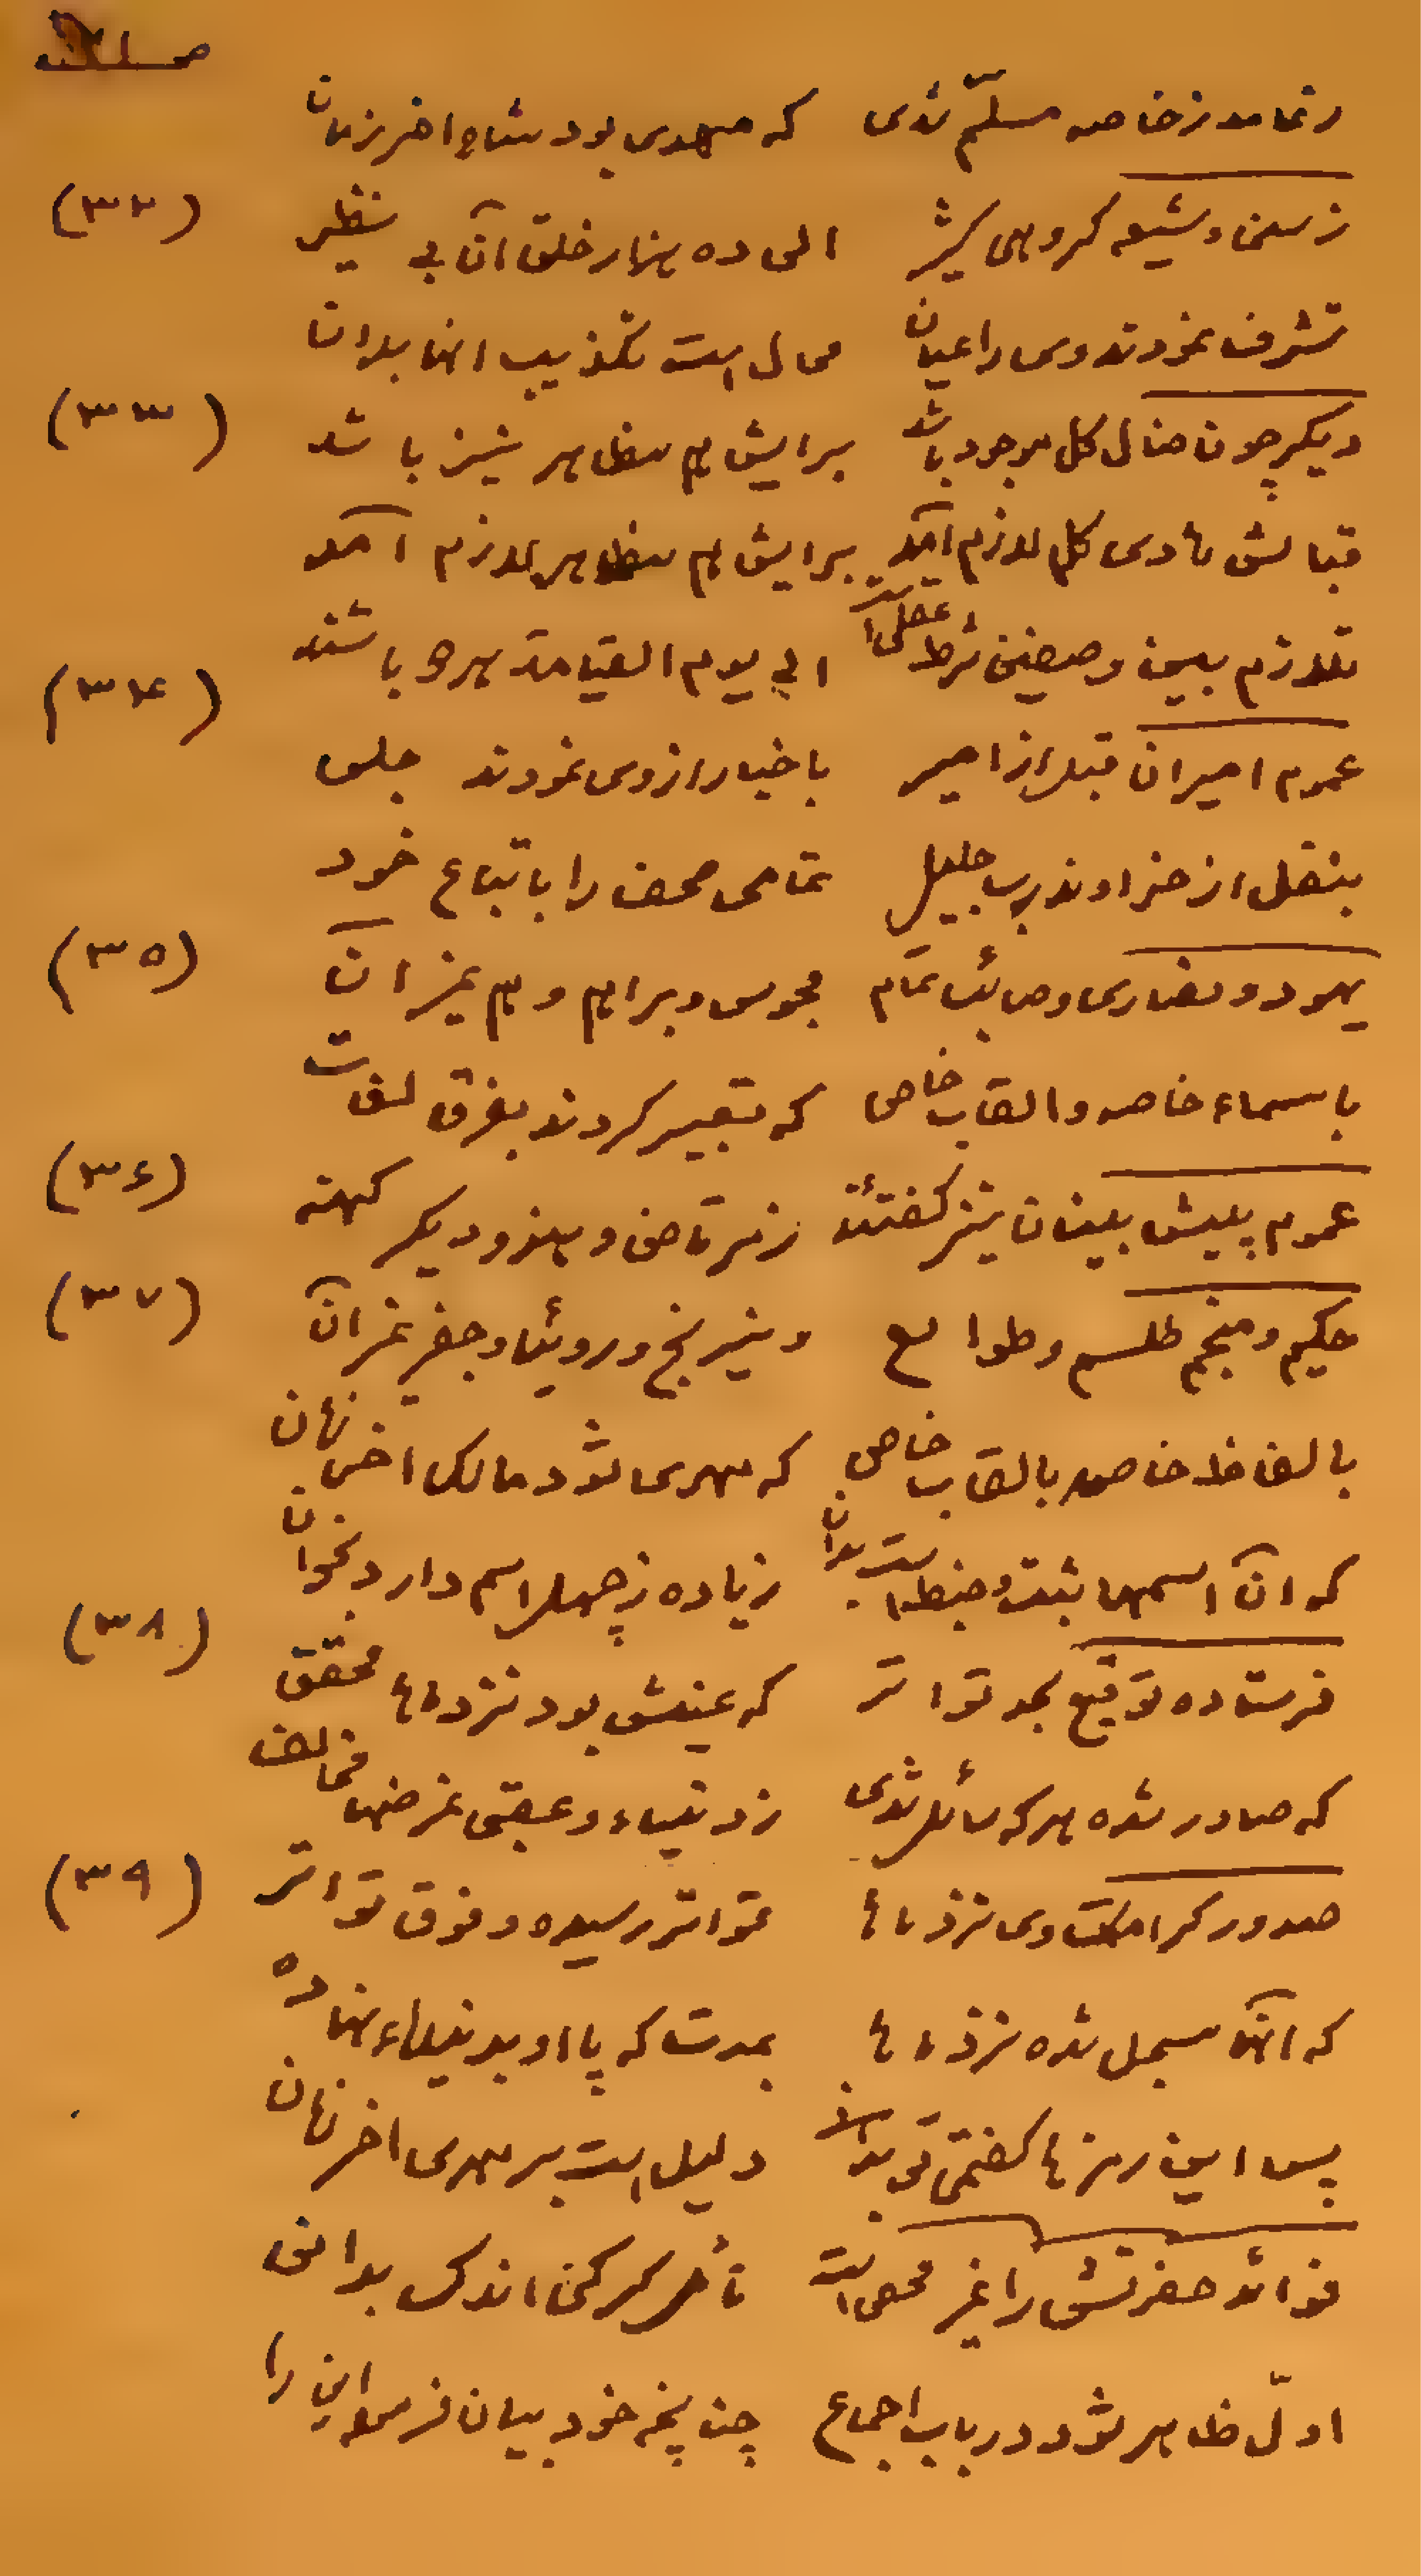 ز عامه ز خاصه مسلّم شدی که مهدی بود شاه اخر زمان
(۳۲)
ز سنی و شیعه کروهی کثیر الی ده هزار خلق آن بی نظیر
تشرف نمودند وی را عیان محال است تکذیب انها بدان
(۳۳)
دیکر چون ضال کل موجود باشد برایش هم مظاهر نیز باشد
قبالش هادی کل لازم آمد برایش هم مظاهر لازم آمد
تلازم بین وصفین شرط عقلی الی یوم القیامة هر دو باشند
(۳۴)
عموم امیران قبل از امیر باخبار از وی نمودند جلی
بنقل از خداوند رب جلیل تمامی صحف را باتباع خود
(۳۵)
یهود و نصاری و صائب تمام مجوس و براهم و هم غیر آن
باسماء خاصه و القاب خاص که تعبیر کردند بفرق لغات
(۳۶)
عموم پیش بینان نیز کفتند ز مرتاض و هندو دیکر کهنه
(۳۷)
حکیم و منجم طلسم و طوالع و نیرنج و رویا و جفر غیر آن
بالفاظ خاصه بالقاب خاص که مهدی شود مالک اخر زمان
که آن اسمها ثبت و ضبط است بدان زیاده ز چهل اسم دارد بخوان
(۳۸)
فرستاده توقیع بحد تواتر که عینش بود نزد ما محقق
که صادر شده هر که سائل شدی ز دنیاء و عقبی غرضها مخالف
(۳۹)
صدور کرامات وی نزد ما بتواتر رسیده و فوق تواتر
که آنها مسجل شده نزد ما بمدت که پا او بدنیاء نهاده
پس این رمزها کفتمی تو بدان دلیل است بر مهدی اخر زمان
فوائد حضرتش را غیر محصی است تأمل کر کنی اندک بدانی
اوّل ظاهر شود در باب اجماع چنانچه خود بیان فرمود این را